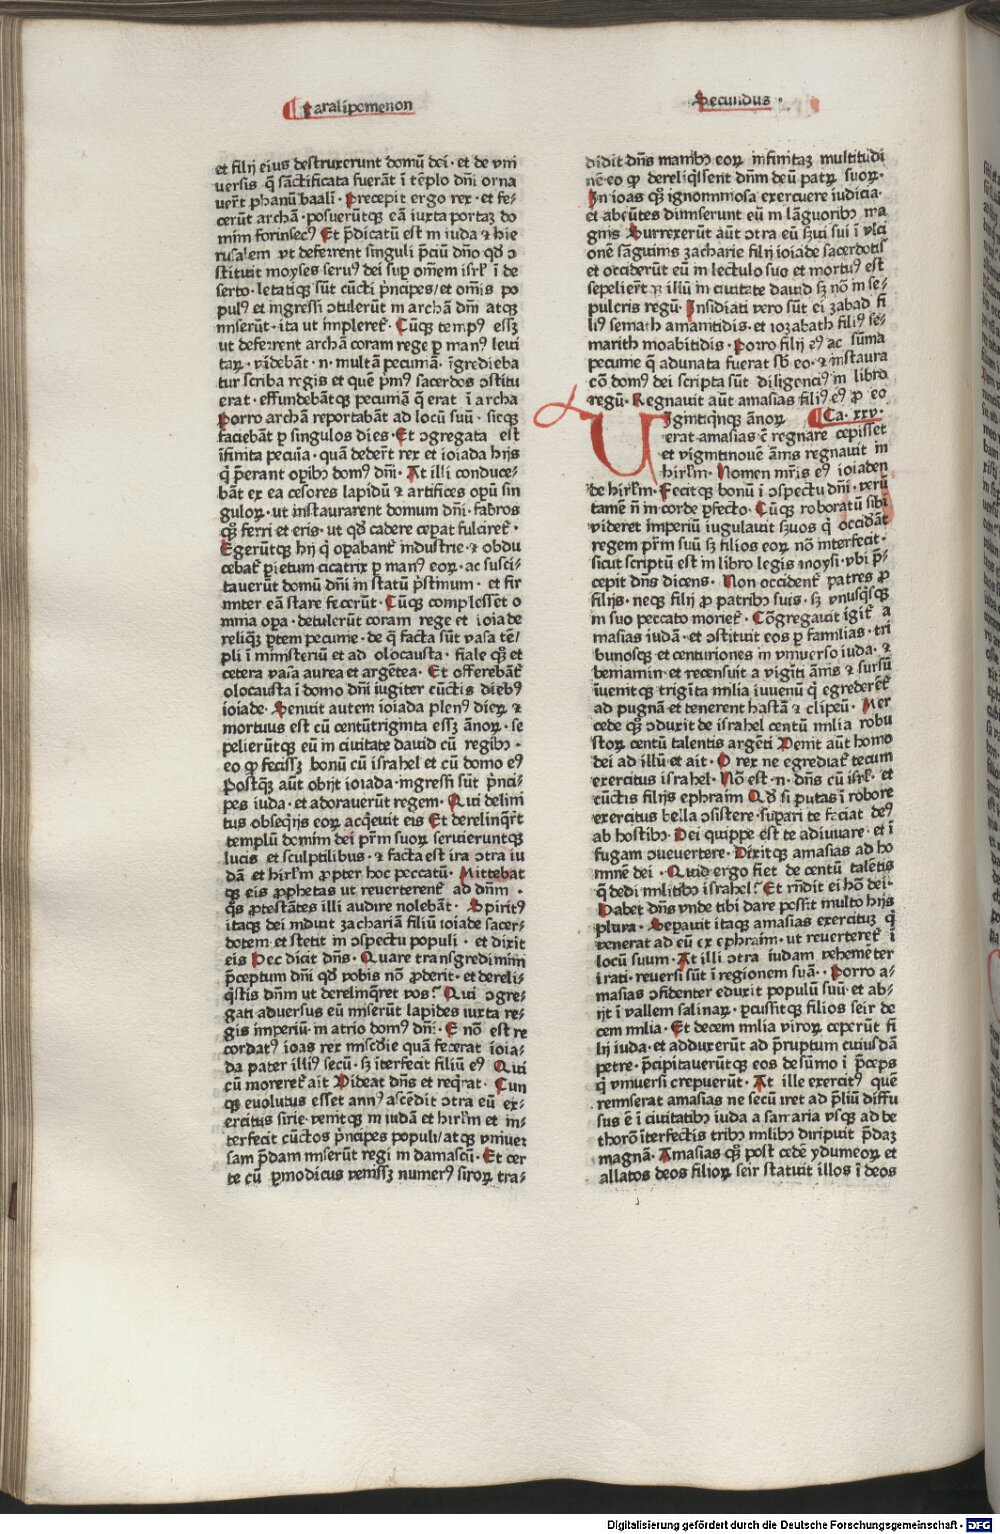 Paralipomenon
Secundus ·
et filij eius destruxerunt domū dei · et de vni
uersis q̄ sāctificata fuerāt ī tēplo dn̄i orna
uer̄t phanū baali · Precepit ergo rex · et fe⸗
cerūt archā · posuerūtqꝫ eā iuxta portaꝫ do
mini forinsecꝰ Et p̄dicatū est in iuda ⁊ hie
rusalem vt deferrent singuli p̄ciū dn̄o qd̄ ↄ
stituit moyses seruꝰ dei suꝑ om̄em isrl̓ ī de
serto · letatiqꝫ sūt cūcti p̄ncipes/ et om̄is po
pulꝰ et ingressi ↄtulerūt in archā dn̄i atqꝫ
miserūt · ita ut impleret̄ · Cūqꝫ tempꝰ essꝫ
ut deferrent archā coram rege ꝑ manꝰ leui
taꝝ · videbāt · n · multā pecuniā · īgredieba
tur scriba regis et quē p̄mꝰ sacerdos ↄstitu
erat · effundebātqꝫ pecuniā q̄ erat ī archa
Porro archā reportabāt ad locū suū · sicqꝫ
faciebāt ꝑ singulos dies · Et ↄgregata est
īfinita pecūia · quā deder̄t rex et ioiada hijs
q̄ p̄erant oꝑibꝰ domꝰ dn̄i · At illi conduce⸗
bāt ex ea cesores lapidū ⁊ artifices oꝑū sin
guloꝝ · ut instaurarent domum dn̄i · fabros
qꝫ ferri et eris · ut qd̄ cadere cepat fulciret̄ ·
Egerūtqꝫ hij q̄ oꝑabant̄ industrie · ⁊ obdu
cebat̄ ꝑietum cicatrix ꝑ manꝰ eoꝝ · ac susci⸗
tauerūt domū dn̄i in statū p̄stinum · et fir
miter eā stare fecerūt · Cūqꝫ complessēt o
mnia oꝑa · detulerūt coram rege et ioiade
reliqꝫ ꝑtem pecunie · de q̄ facta sūt vasa tē/
pli ī ministeriū et ad olocausta · fiale qꝫ et
cetera vasa aurea et argētea · Et offerebāt̄
olocausta ī domo dn̄i iugiter cūctis diebꝰ
ioiade · Senuit autem ioiada plenꝰ dieꝝ ⁊
mortuus est cū centūtriginta essꝫ ānoꝝ · se
pelierūtqꝫ eū in ciuitate dauid cū regibꝰ ·
eo ꝙ fecissꝫ bonū cū israhel et cū domo eꝰ
Postqꝫ aūt obijt ioiada · ingressi sūt p̄nci⸗
pes iuda · et adorauerūt regem · Qui delini
tus obseq̄ijs eoꝝ acq̄euit eis Et derelinq̄r̄t
templū domini dei pr̄m suoꝝ seruieruntqꝫ
lucis et sculptilibus · ⁊ facta est ira ↄtra iu
dā et hirl̓m ꝓpter hoc peccatū · Mittebat
qꝫ eis ꝓphetas ut reuerterent̄ ad dn̄m ·
q̄s ꝓtestātes illi audire nolebāt · Spiritꝰ
itaqꝫ dei induit zachariā filiū ioiade sacer⸗
dotem et stetit in ↄspectu populi · et dixit
eis Hec dicit dn̄s · Quare transgredimini
p̄ceptum dn̄i qd̄ vobis nō ꝓderit · et dereli⸗
q̄stis dn̄m ut derelinq̄ret vos? Qui ↄgre⸗
gati aduersus eū miserūt lapides iuxta re⸗
gis imperiū · in atrio domꝰ dn̄i · E nō est re
cordatꝰ ioas rex misc̄die quā fecerat ioia⸗
da pater illiꝰ secū · sꝫ īterfecit filiū eꝰ Qui
cū moreret̄ ait Videat dn̄s et req̄rat · Cun
qꝫ euolutus esset annꝰ ascēdit ↄtra eū ex⸗
ercitus sirie · venitqꝫ in iudā et hirl̓m et in⸗
terfecit cūctos p̄ncipes populi/ atqꝫ vniuer
sam p̄dam miserūt regi in damascū · Et cer
te cū ꝑmodicus venissꝫ numerꝰ siroꝝ tra⸗
didit dn̄s manibꝰ eoꝝ infinitaꝫ multitudi
nē · eo ꝙ dereliq̄ssent dn̄m deū patꝝ suoꝝ ·
In ioas qꝫ ignominiosa exercuere iudicia ·
et abeūtes dimiserunt eū in lāguoribꝰ ma
gnis Surrexerūt aūt ↄtra eū s̄ui sui ī vlci
onē sāguinis zacharie filij ioiade sacerdotis
et occiderūt eū in lectulo suo et mortuꝰ est
sepelier̄t qꝫ illū in ciuitate dauid sꝫ nō in se⸗
pulcris regū · Insidiati vero sūt ei zabad fi
liꝰ semath amanitidis · et iozabath filiꝰ se⸗
marith moabitidis · Porro filij eꝰ ac sūma
pecunie q̄ adunata fuerat sb̄ eo · ⁊ instaura
cō domꝰ dei scripta sūt diligenciꝰ in libro
regū · Regnauit aūt amasias filiꝰ eꝰ ꝓ eo
UIgintiqnqꝫ ānoꝝ Ca · xxv ·
erat amasias cū regnare cepisset
et vigintinouē ānis regnauit in
hirl̓m · Nomen mr̄is eꝰ ioiaden
de hirl̓m · Fecitqꝫ bonū ī ↄspectu dn̄i · verū
tamē n̄ in corde ꝑfecto · Cūqꝫ roboratū sibi
videret imperiū iugulauit s̄uos q̄ occidāt
regem pr̄m suū sꝫ filios eoꝝ nō interfecit ·
sicut scriptū est in libro legis moysi · vbi p̄⸗
cepit dn̄s dicens · Non occident̄ patres ꝓ
filijs · neqꝫ filij ꝓ patribꝰ suis · sꝫ vnusq̄sqꝫ
in suo peccato moriet̄ · Cōgregauit igit̄ a
masias iudā · et ↄstituit eos ꝑ familias · tri
bunosqꝫ et centuriones in vniuerso iuda · ⁊
beniamin · et recensuit a vigīti ānis ⁊ sursū
īuenitqꝫ trigīta milia iuuenū q̄ egrederēt̄
ad pugnā et tenerent hastā ⁊ clipeū · Mer
cede qꝫ ↄduxit de israhel centū milia robu
stoꝝ centū talentis argēti Venit aūt homo
dei ad illū et ait · O rex ne egrediat̄ tecum
exercitus israhel · Nō est · n · dn̄s cū isrl̓ · et
cūctis filijs ephraim Qd̄ si putas ī robore
exercitus bella ↄsistere · suꝑari te faciat deꝰ
ab hostibꝰ · Dei quippe est te adiuuare · et ī
fugam ↄuertere · Dixitqꝫ amasias ad ho
minē dei · Quid ergo fiet de centū talētis
q̄ dedi militibꝰ israhel? Et rn̄dit ei hō dei ·
Habet dn̄s vnde tibi dare possit multo hijs
plura · Separauit itaqꝫ amasias exercituꝫ q̄
venerat ad eū ex ephraim · ut reuerteret̄ ī
locū suum · At illi ↄtra iudam vehemēter
irati · reuersi sūt ī regionem suā · Porro a⸗
masias ↄfidenter eduxit populū suū · et ab⸗
ijt ī vallem salinaꝝ · ꝑcussitqꝫ filios seir de
cem milia · Et decem milia viroꝝ ceperūt fi
lij iuda · et adduxerūt ad p̄ruptum cuiusdā
petre · p̄cipitauerūtqꝫ eos de sūmo ī p̄ceps
q̄ vniuersi crepuerūt · At ille exercitꝰ quē
remiserat amasias ne secū iret ad p̄liū diffu
sus ē ī ciuitatibꝰ iuda a samaria vsqꝫ ad be
thorō īterfectis tribꝰ milibꝰ diripuit p̄daꝫ
magnā · Amasias qꝫ post cedē ydumeoꝝ et
allatos deos filioꝝ seir statuit illos ī deos
Digitalisierung gefördert durch die Deutsche Forschungsgemeinschaft - DFG